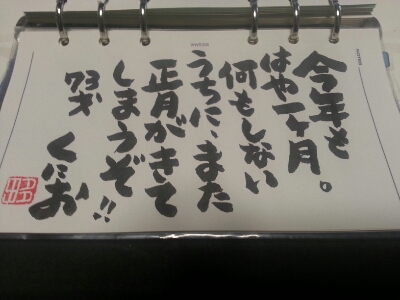 今年も
はや一ヶ月。
何もしない
うちに、また
正月がきて
しまうぞ!!
73才 くにお